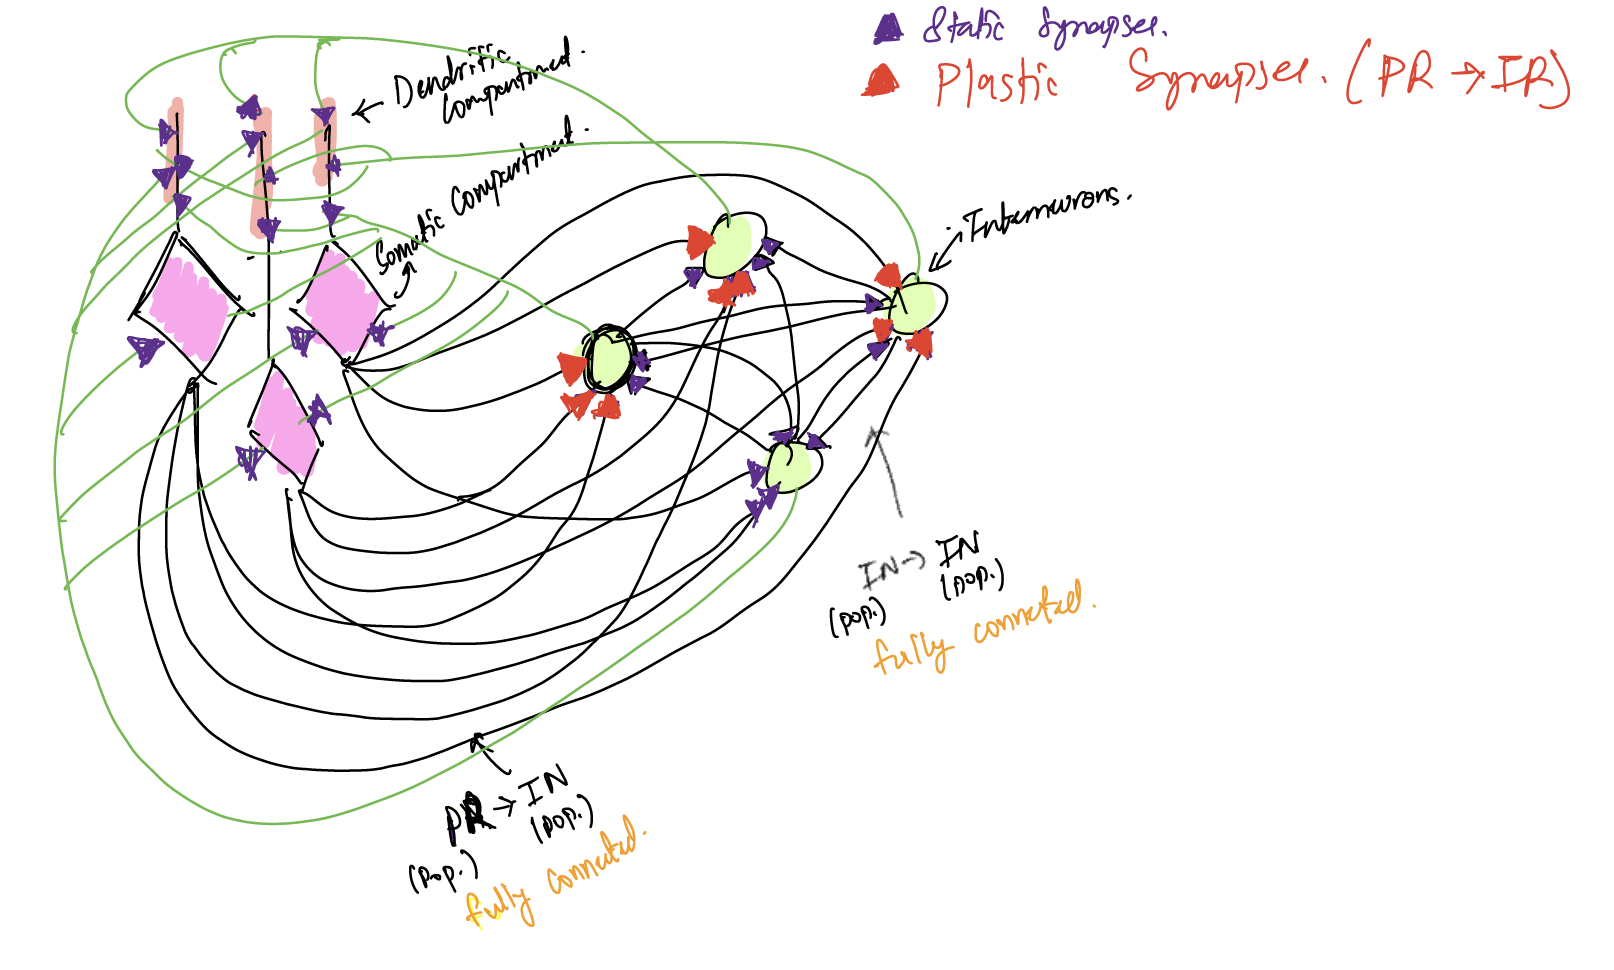 Static Synapses.
Plastic Synapses. (PR → IR)
← Dendritic
Compartment.
Somatic Compartment.
Interneurons.
IN → IN
(pop.) (pop.)
fully connected.
PR → IN
(pop.) (pop.)
fully connected.